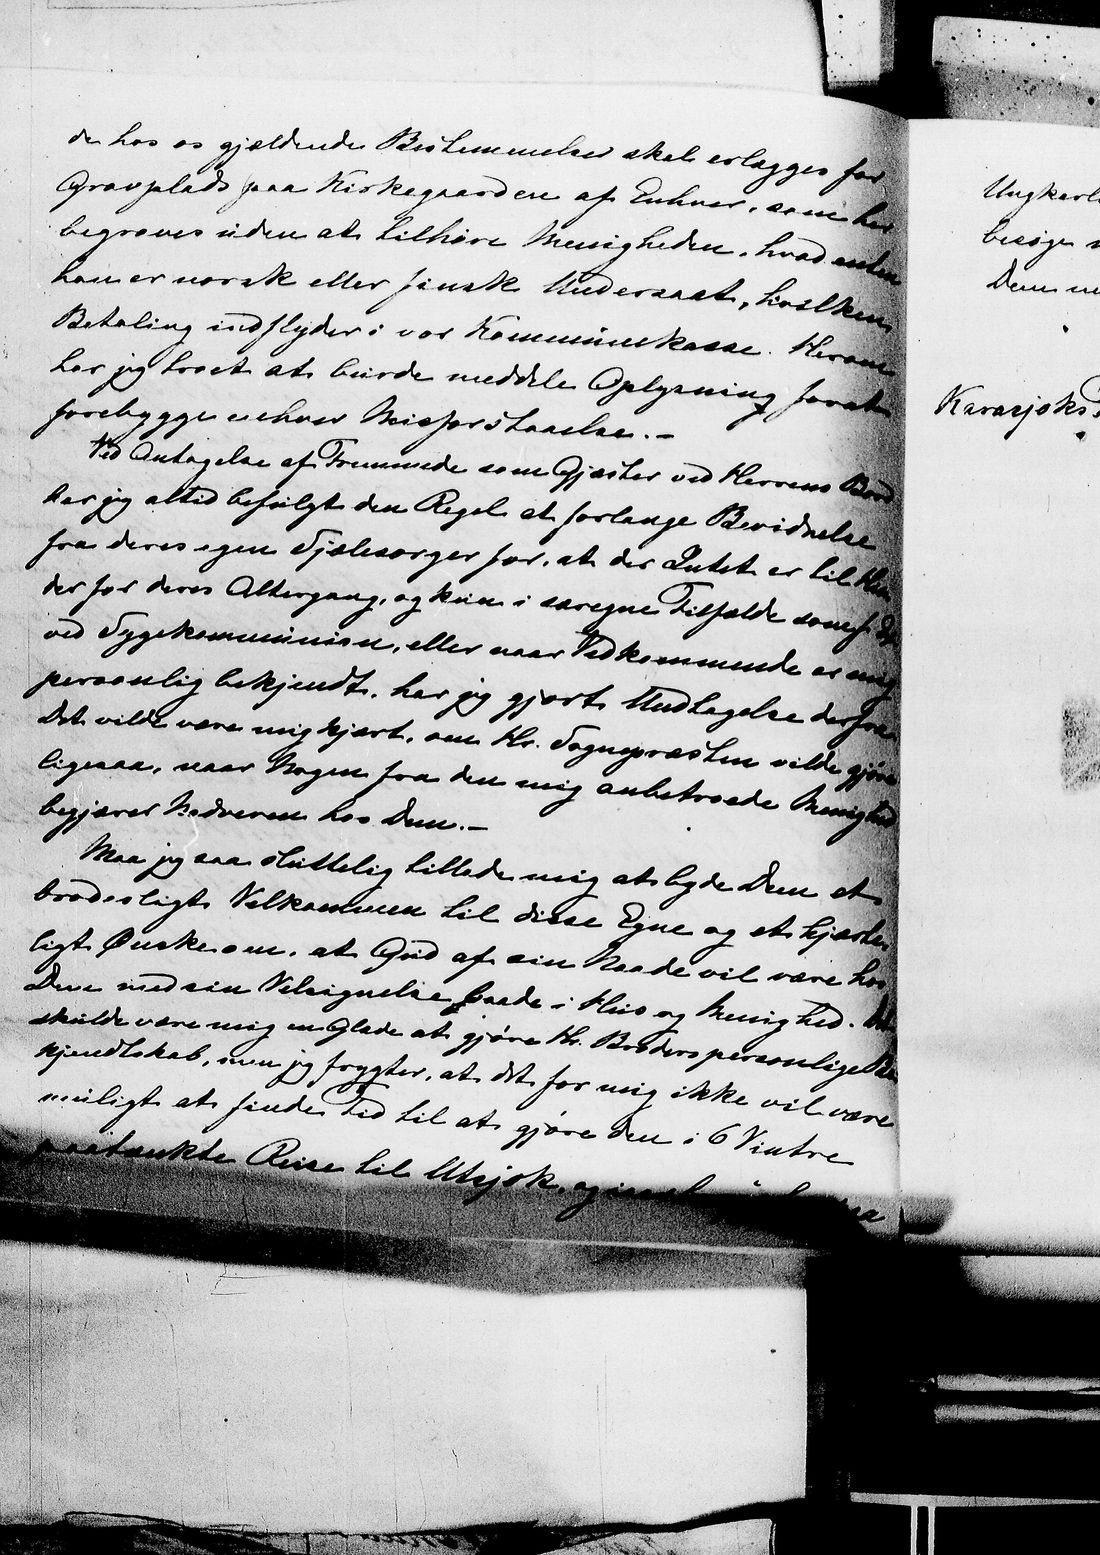 de hos os gjældende Bestemmelser skal erlægges for
Gravplads paa Kirkegaarden af Enhver, som her
begraves uden at tilhøre Menigheden, hvad enten
han er norsk eller finsk Undersaat, hvilken
Betaling indflyder i vor Kommunekasse. Herom
har jeg troet at burde meddele Oplysning forat
forebygge enhver Misforstaaelse.–
Ved Antagelse af Fremmede som Gjæster ved Herrens Bord
har jeg altid befulgt den Regel at forlange Bevidnelse
fra deres egen Sjælesørger for, at der Intet er til Hin
der for deres Altergang, og kun i særegne Tilfælde som f.
ved Sygekommunion, eller naar Vedkommende er mig
personlig bekjendt, har jeg gjort Undtagelse derfra.
Det vilde være mig kjært, om Hr. Sognepræsten vilde gjøre
ligesaa, naar Nogen fra den mig anbetroede Menighed
begjærer Nadveren hos Dem.–
Maa jeg saa sluttelig tillade mig at byde Dem et
broderligt Velkommen til disse Egne og et hjerte
ligt Ønske om, at Gud af sin Naade vil være hos
Dem med sin Velsignelse baade i Hus og Menighed. Det
skulde være mig en Glæde at gjøre Hr. Broders personlige Be
kjendtskab, men jeg frygter, at det for mig ikke vil være
muligt at finde Tid til at gjøre den i 6 Vintre
paatænkte Reise til Utsjok, og
Ungkarl
besøge
Dem
Karasjoks